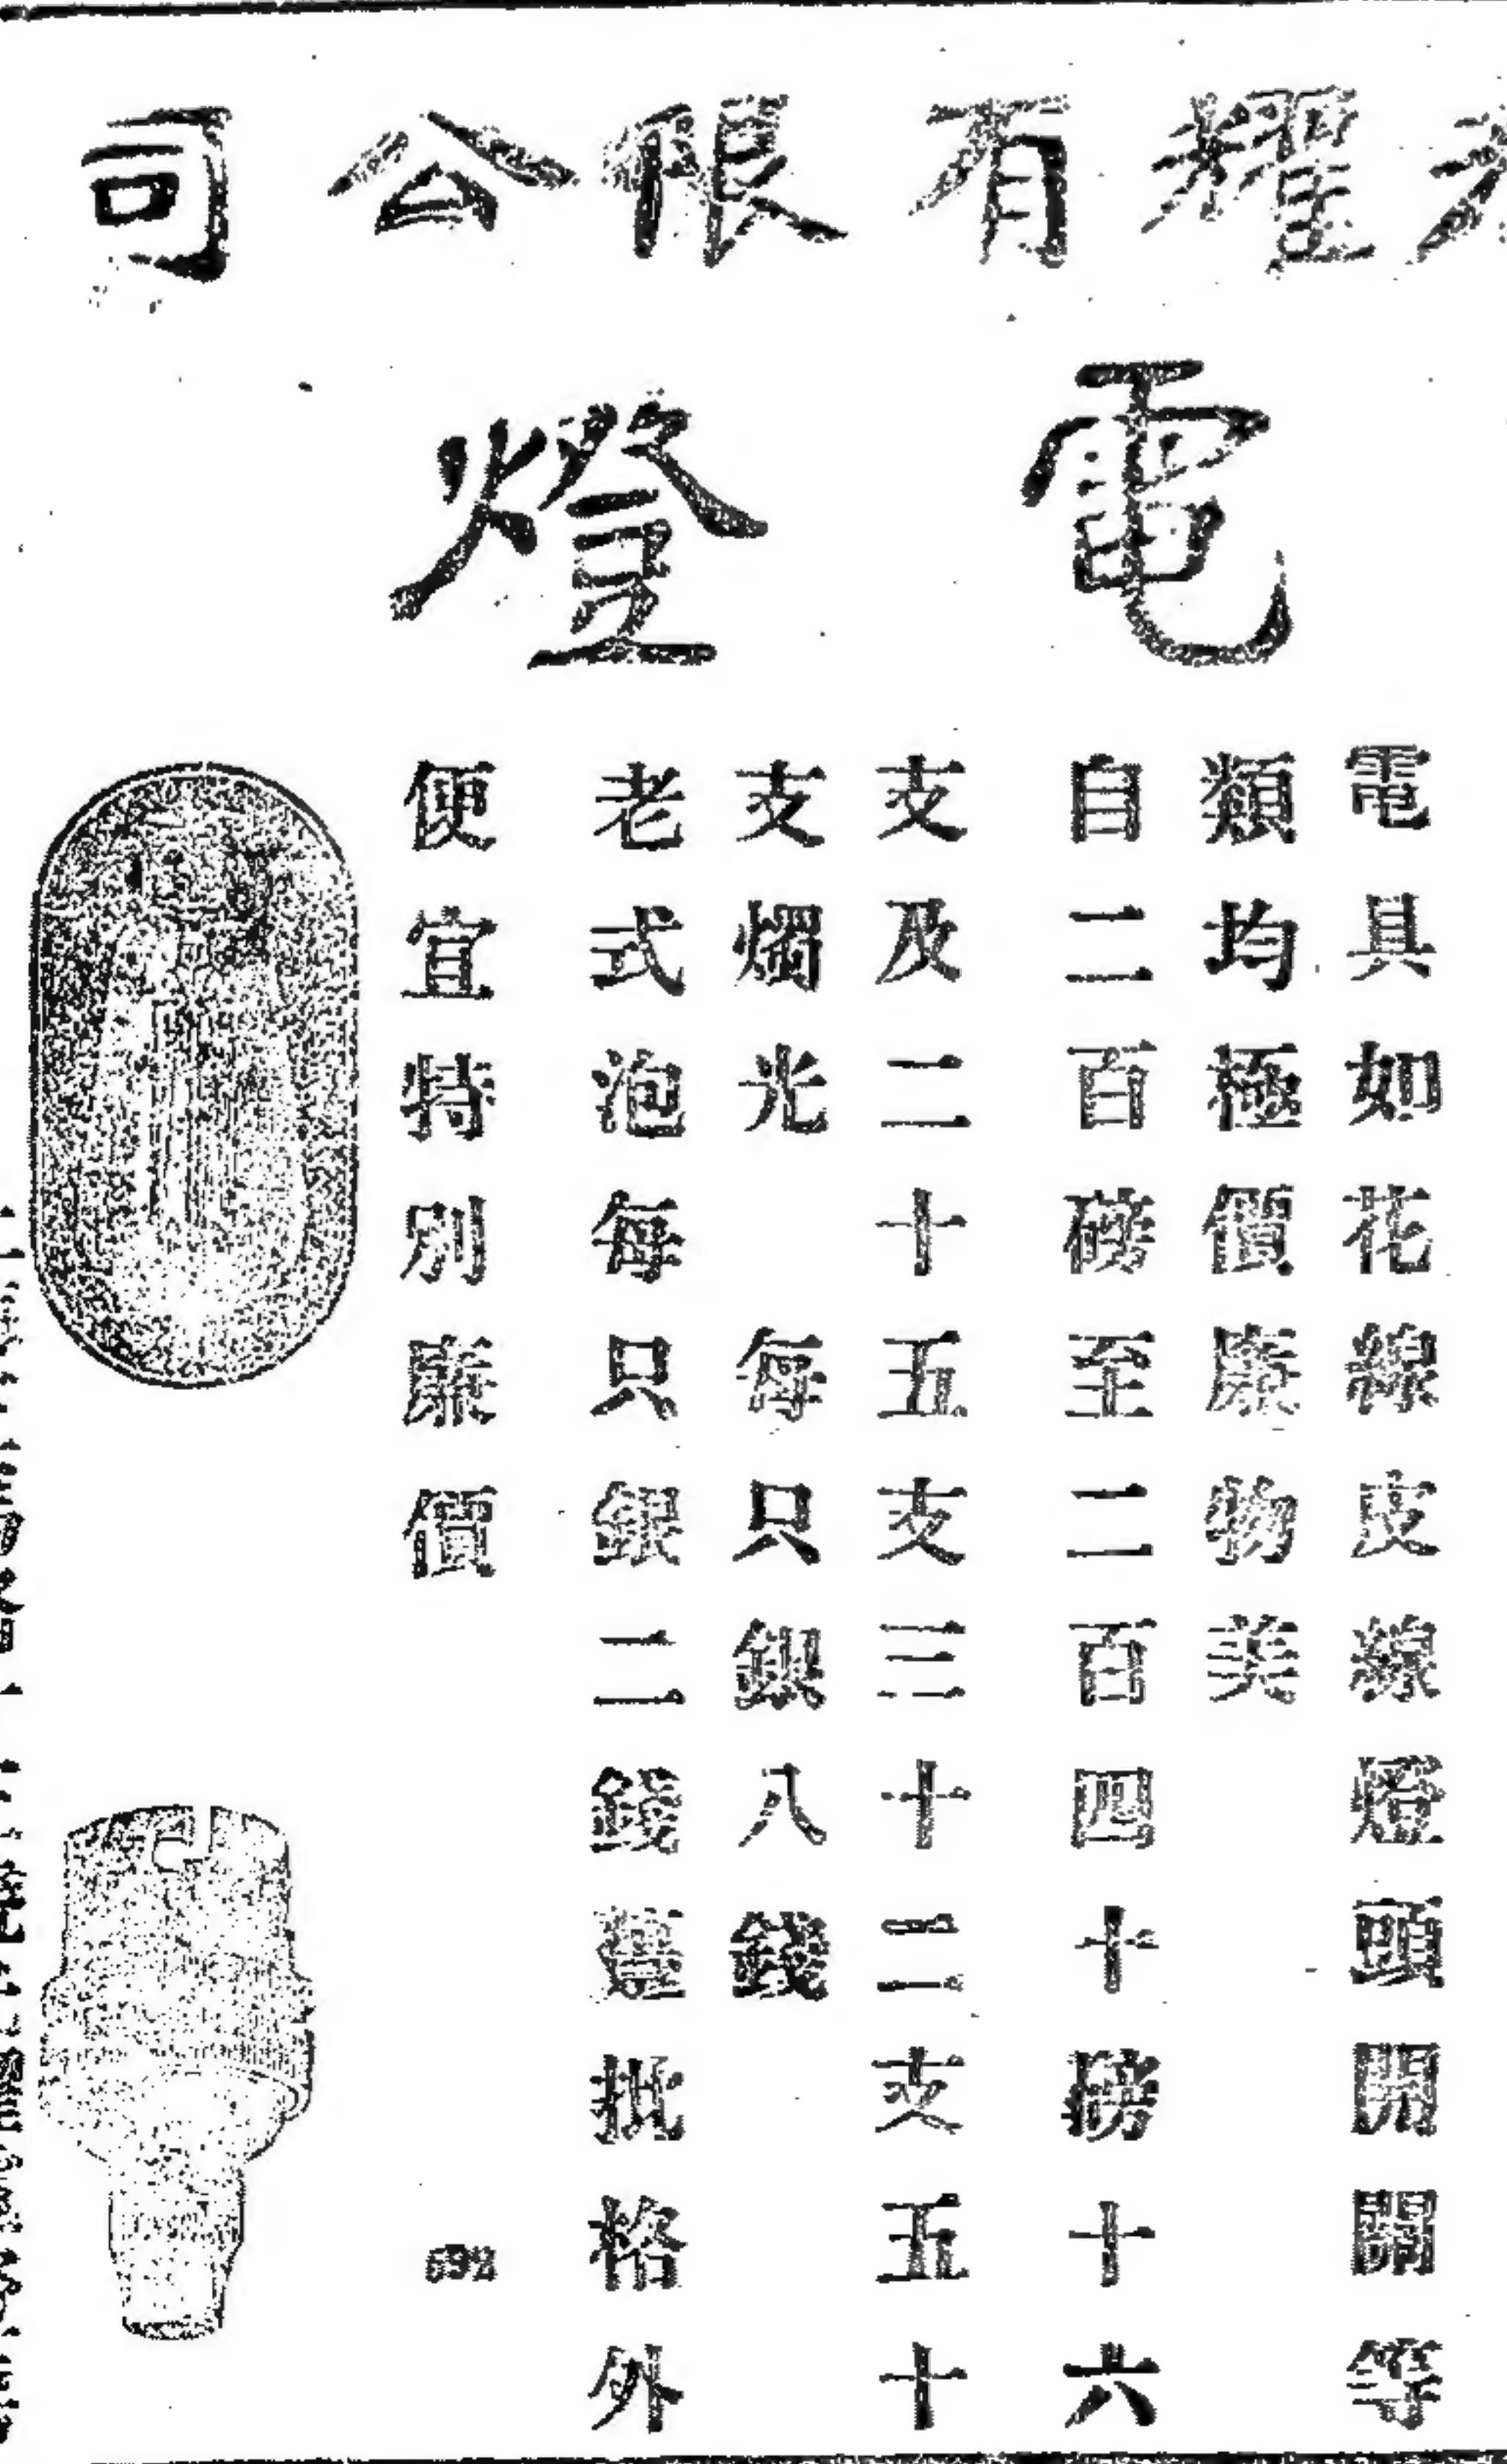 耀有限公司
電燈
電具如花線皮線燈頭開關等
類均極價廉物美
自二百磅至二百四十磅十六
支及二十五支三十二支五十
支燭光 每只銀八錢
老式泡每只銀二錢躉批格外
便宜特別廉價
692